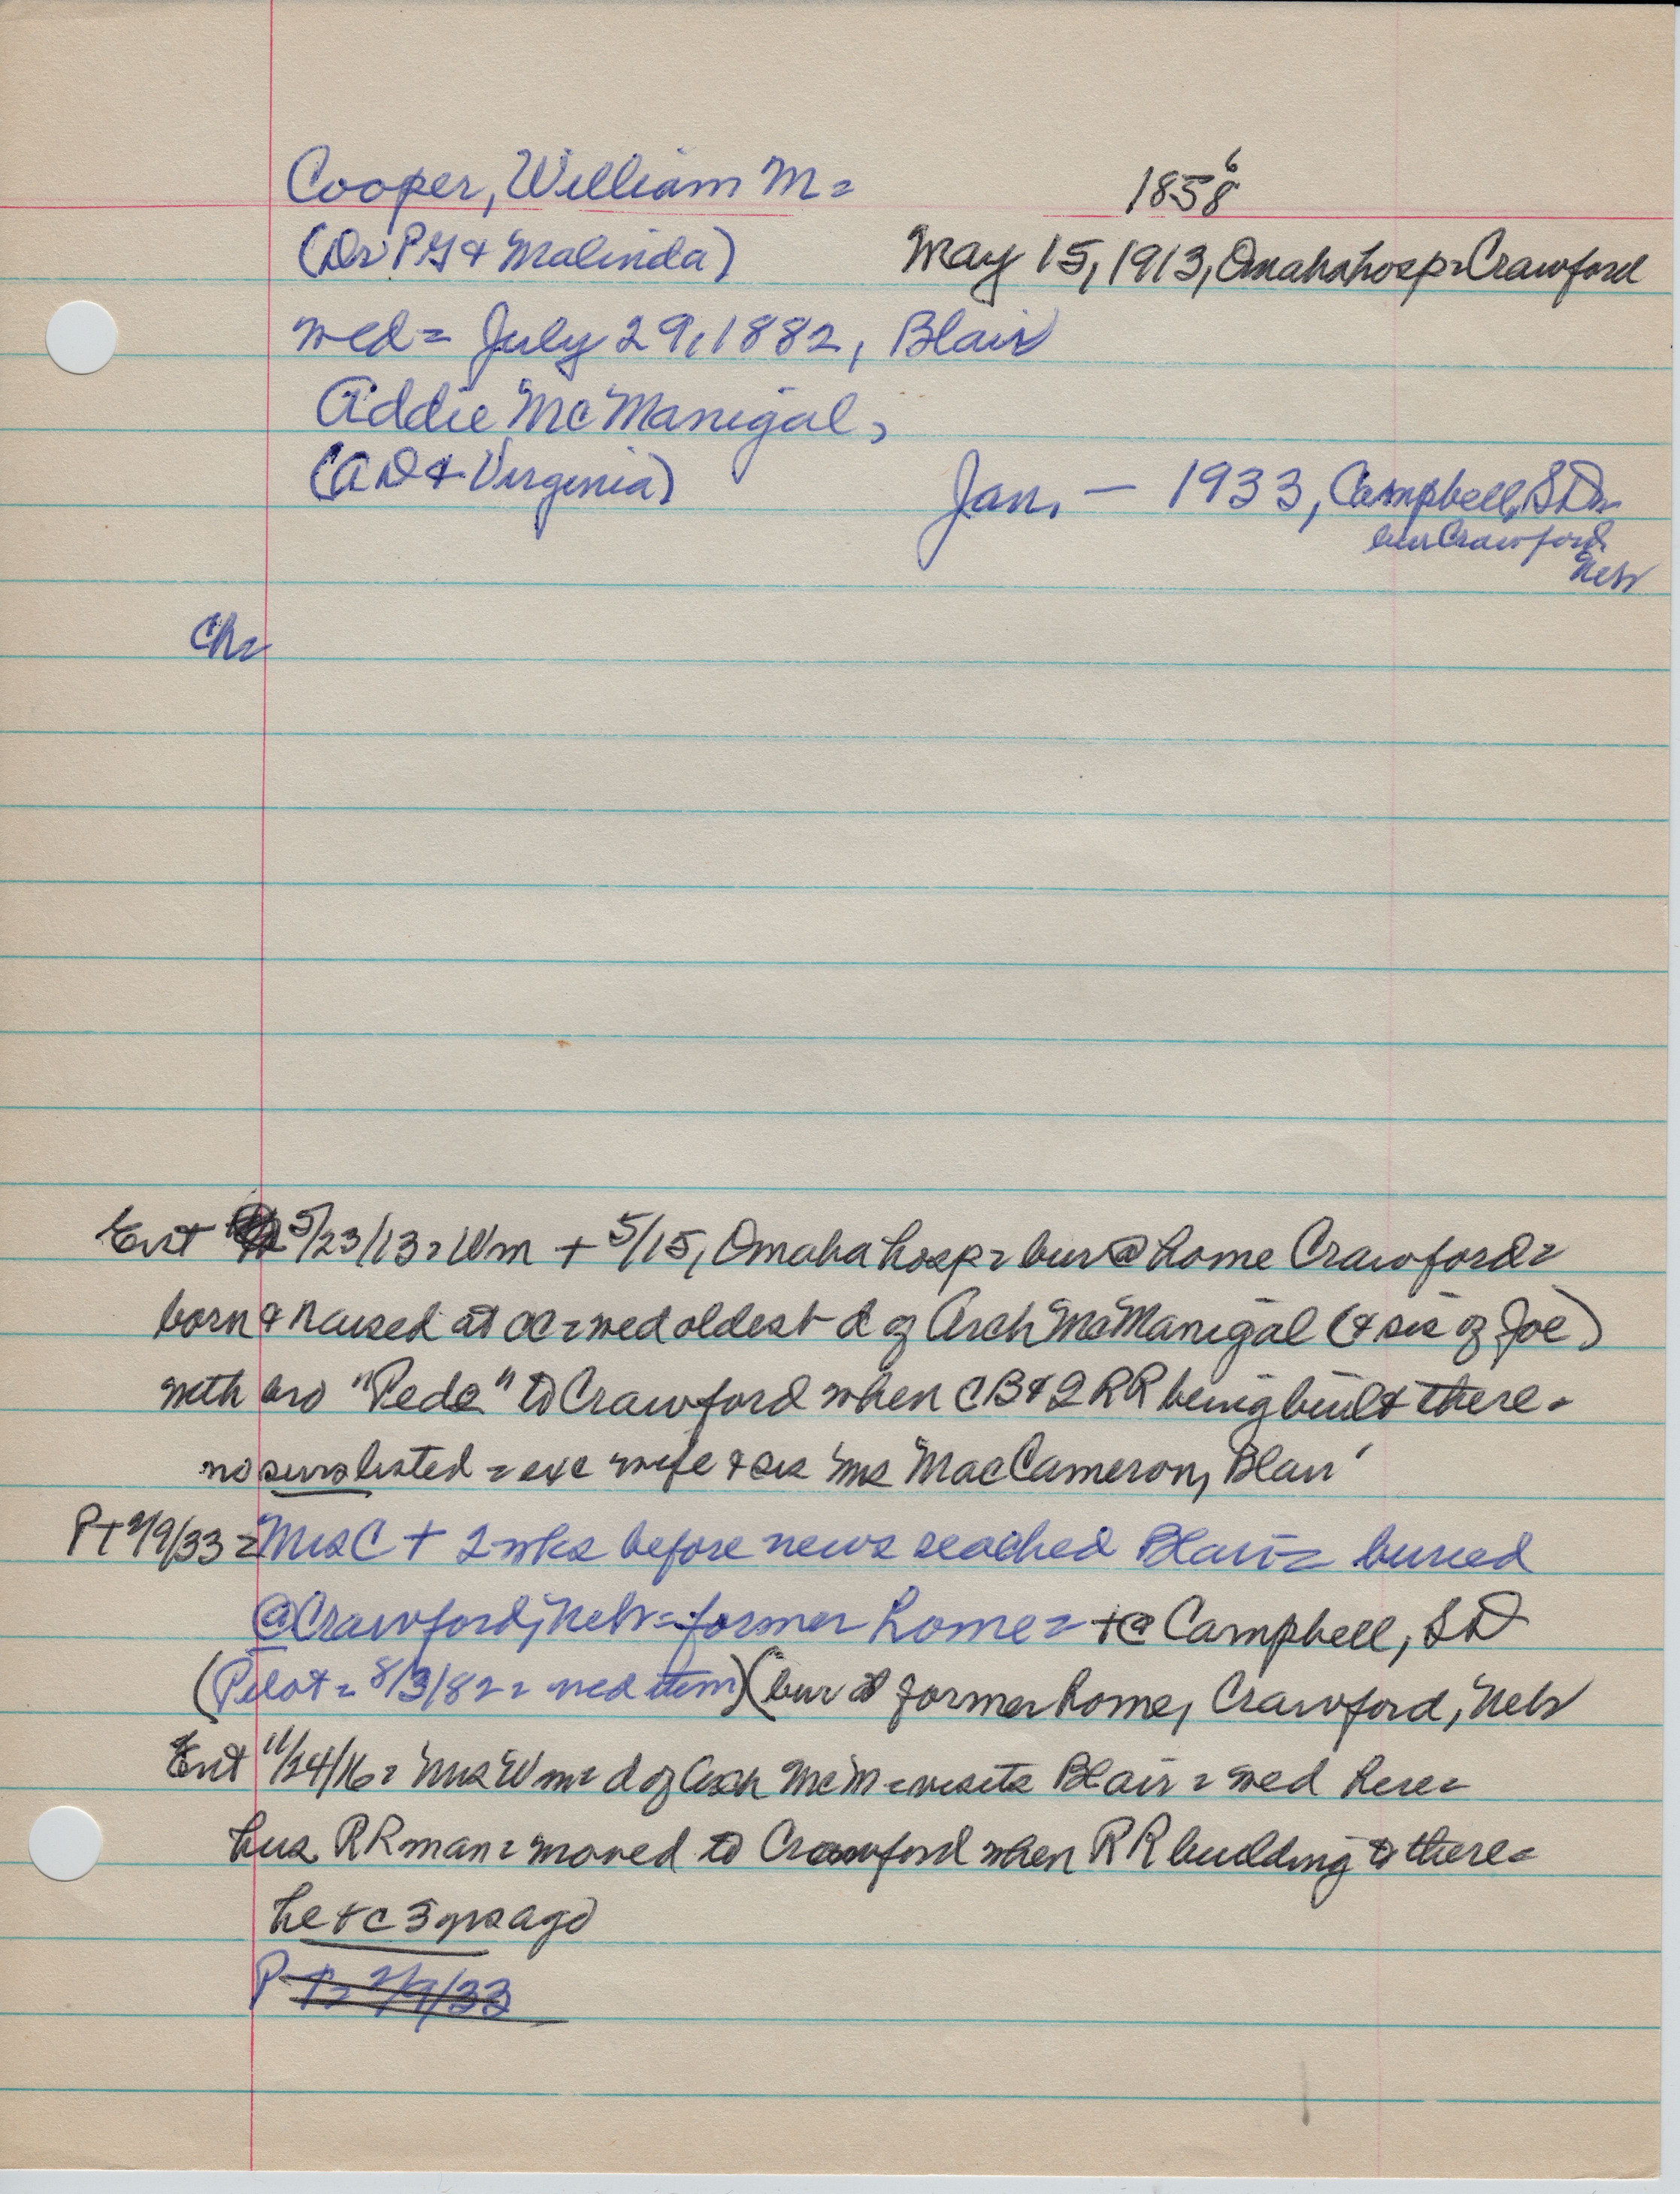 Cooper, William M = 1858 6
(Dr P G & Malinda) May 15, 1913, Omaha hosp = Crawford
wed = July 29, 1882, Blair
Addie McManigal,
(A D & Virginia) Jan, — 1933, Campbell, S D =
bur Crawford
Nebr
Ch =
Ent 5/23/13 = Wm + 5/15, Omaha hosp = bur @ home Crawford =
born & raised at CC = wed oldest d of Arch McManigal (& sis of Joe)
with bro "Pede" to Crawford when C B & Q RR being built there =
no survs listed = exc wife & sis Mrs Mac Cameron, Blair
PT 2/9/33 = Mrs C + 2 wks before news reached Blair = buried
@ Crawford, Nebr = former home = + @ Campbell, S D
(Pilot = 8/3/82 = wed item) (bur at former home, Crawford, Nebr
Ent 11/24/16 = Mrs Wm = d of Arch McM = visits Blair = wed here =
hus RR man = moved to Crawford when RR building to there =
he + c 3 yrs ago
P T = 2/9/33